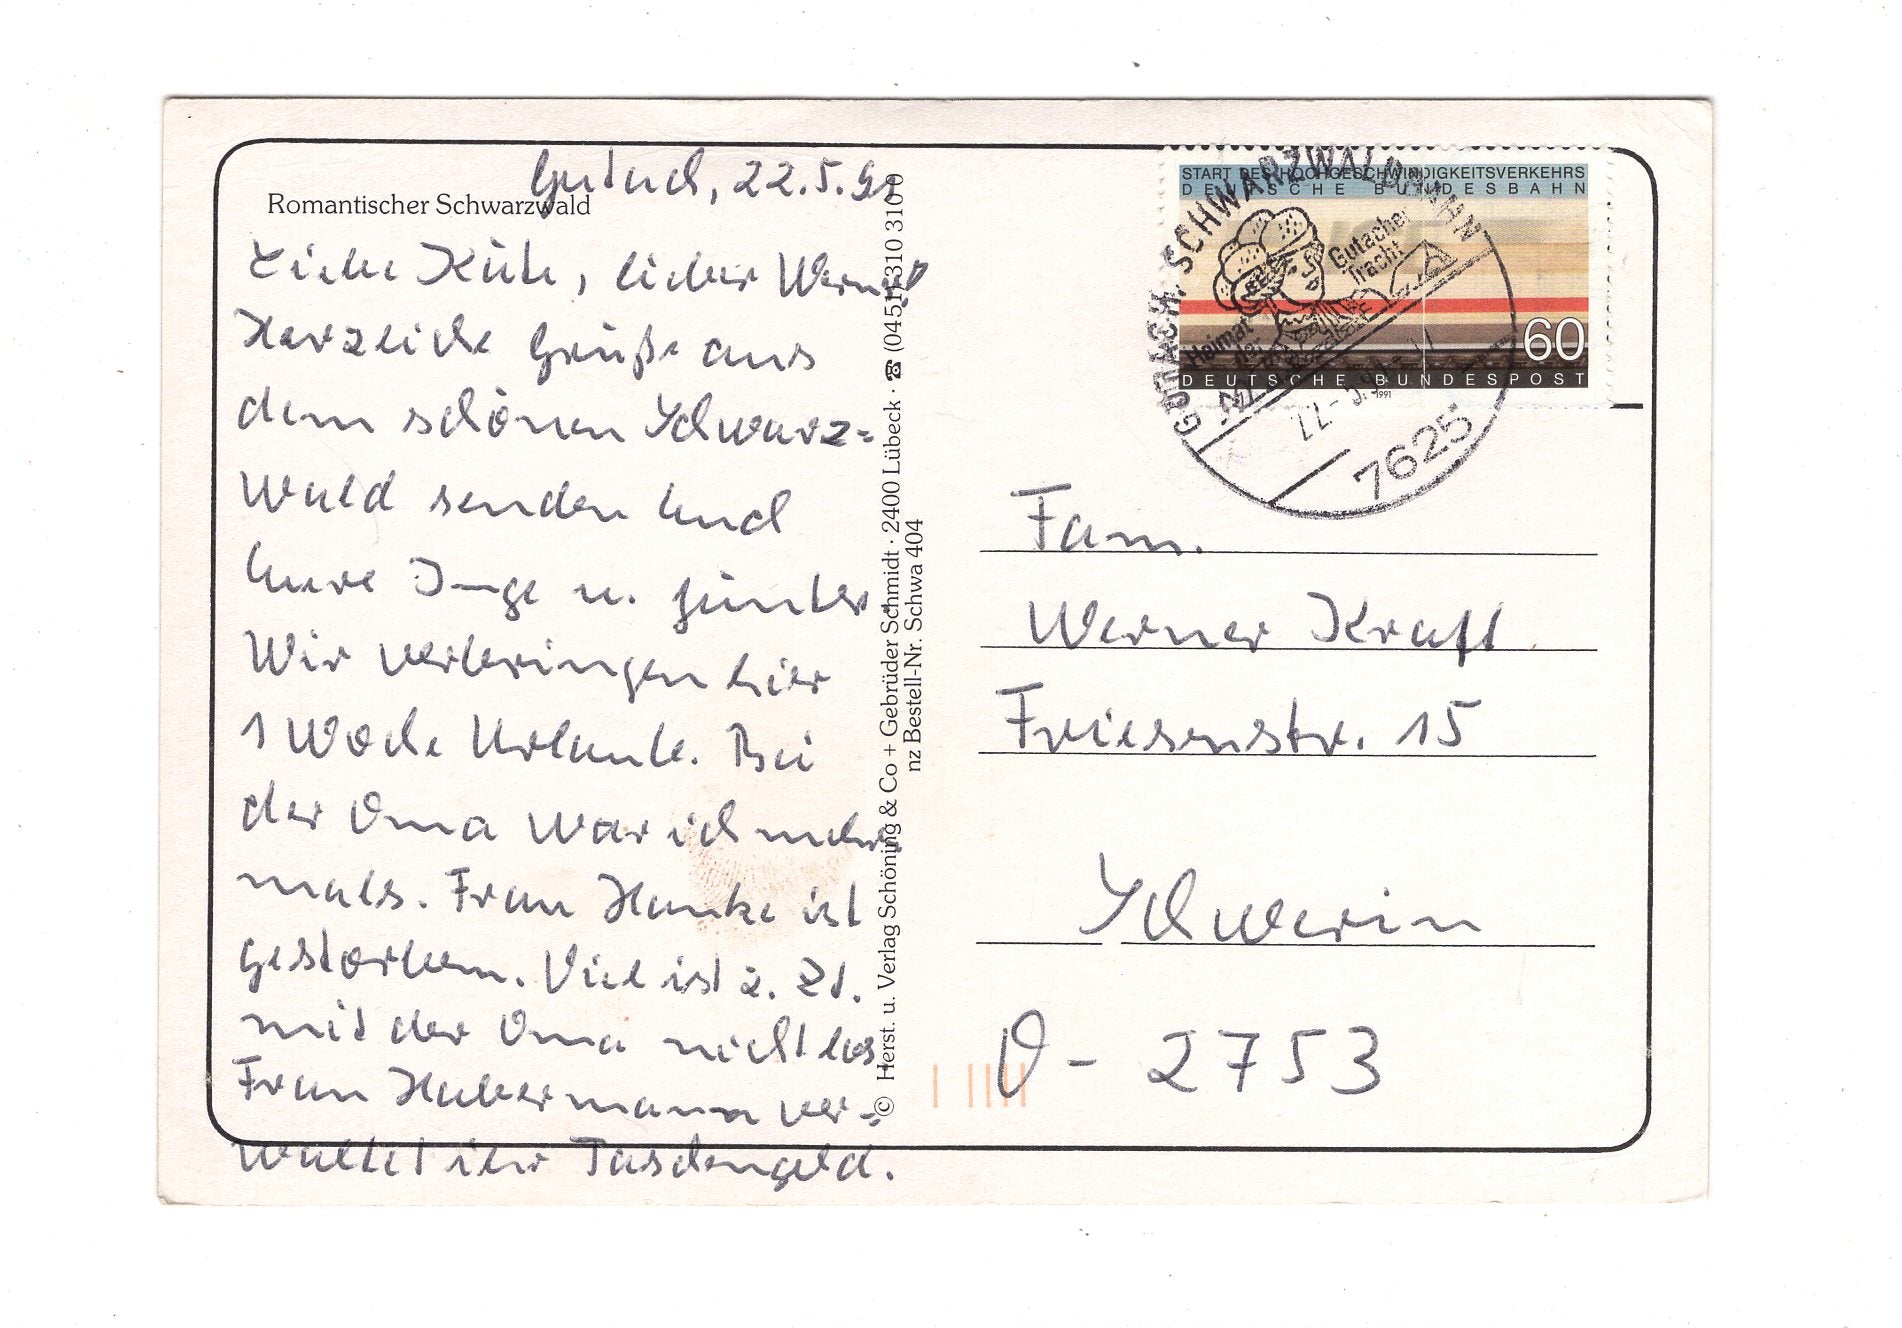 Romantischer Schwarzwald
Gutach, 22.5.91
Liebe Käte, lieber Werner!
Herzliche Grüße aus
dem schönen Schwarz=
wald senden Euch
Eure Inge u. Günter
Wir verbringen hier
1 Woche Urlaub. Bei
der Oma war ich mehr
mals. Frau Hanke ist
gestorben. Viel ist z. Zt.
mit der Oma nicht los.
Frau Habermann ver=
waltet ihr Taschengeld.
© Herst. u. Verlag Schöning & Co + Gebrüder Schmidt · 2400 Lübeck · ☎ (0451) 310 310
nz Bestell-Nr. Schwa 404
START DES HOCHGESCHWINDIGKEITSVERKEHRS
DEUTSCHE BUNDESBAHN
60
DEUTSCHE BUNDESPOST
1991
GUTACH. SCHWARZWALDBAHN
Gutacher
Tracht
Heimat
der
22.-5.91
7625
Fam.
Werner Kraft
Friesenstr. 15
Schwerin
O - 2753